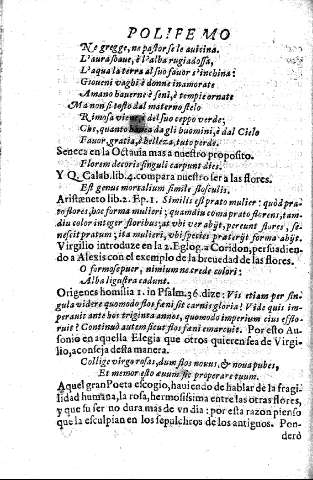 POLIFEMO
Ne gregge, ne pastor se le auicina.
L'aura soaue, è l'alba rugiadosa,
L'aqua la terra al suo fauor s'inchina:
Gioueni vaghi è donne inamorate
Amano hauerne è seni, è tempie ornate
Ma non si tosto dal materno stelo
Rimosa viene, è del suo ceppo verde;
Che, quanto hauea da gli huomini, è dal Cielo
Fauor, gratia, è belleza, tuto perde.
Seneca en la Octauia mas a nuestro proposito.
Florem decoris singuli carpunt dies.
Y Q. Calab. lib. 4. compara nuestro ser a las flores.
Est genus mortalium simile flosculis.
Aristæneto lib. 2. Ep. 1. Similis est prato mulier: quod pra-
to flores, hoc forma mulieri; quamdiu coma prato florens, tam-
diu color integer floribus; at vbi ver abijt, pereunt flores, se-
nescit pratum; ita mulieri, vbi species præterijt forma abijt.
Virgilio introduze en la 2. Eglog. a Coridon, persuadien-
do a Alexis con el exemplo de la breuedad de las flores.
O formose puer, nimium ne crede colori:
Alba ligustra cadunt.
Origenes homilia 1. in Psalm. 36. dize: Vis etiam per sin-
gula videre quomodo flos fæni sit carnis gloria? Vide quis im-
perauit ante hos triginta annos, quomodo imperium eius efflo-
ruit? Continuò autem sicut flos fæni emarcuit. Por esto Au-
sonio en aquella Elegia que otros quieren sea de Virgi-
lio, aconseja desta manera.
Collige virgo rosas, dum flos nouus, & noua pubes,
Et memor esto æuum sic properare tuum.
Aquel gran Poeta escogio, hauiendo de hablar de la fragi-
lidad humana, la rosa, hermosissima entre las otras flores,
y que su ser no dura mas de vn dia: por esta razon pienso
que la esculpian en los sepulchros de los antiguos. Pon-
derò